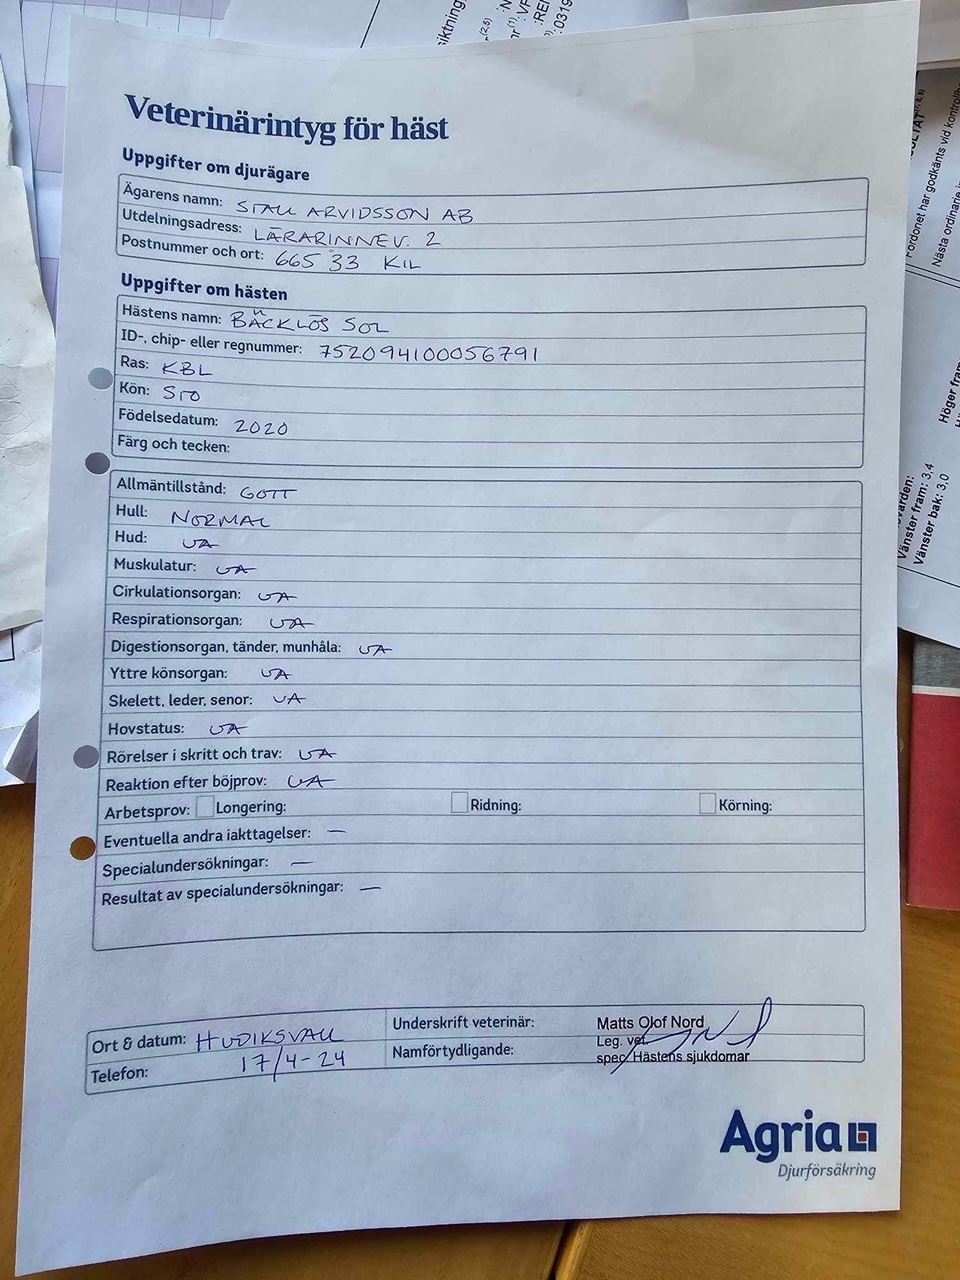 siktning
Veterinärintyg för häst
Uppgifter om djurägare
Ägarens namn: STALL ARVIDSSON AB
Utdelningsadress: LÄRARINNEV. 2
Postnummer och ort: 665 33 KIL
Uppgifter om hästen
Hästens namn: BÄCKLÖS SOL
ID-, chip- eller regnummer: 752094100056791
Ras: KBL
Kön: STO
Födelsedatum: 2020
Färg och tecken:
Allmäntillstånd: GOTT
Hull: NORMAL
Hud: UA
Muskulatur: UA
Cirkulationsorgan: UA
Respirationsorgan: UA
Digestionsorgan, tänder, munhåla: UA
Yttre könsorgan: UA
Skelett, leder, senor: UA
Hovstatus: UA
Rörelser i skritt och trav: UA
Reaktion efter böjprov: UA
Arbetsprov: Longering: Ridning: Körning:
Eventuella andra iakttagelser: —
Specialundersökningar: —
Resultat av specialundersökningar: —
Ort & datum: HUDIKSVALL
17/4-24
Telefon:
Underskrift veterinär: Matts Olof Nord
Leg. vet.
Namförtydligande: spec. Hästens sjukdomar
Agria
Djurförsäkring
Fordonet har godkänts vid
Nästa ordinarie
Höger fram:
Vänster fram: 3,4
Vänster bak: 3,0